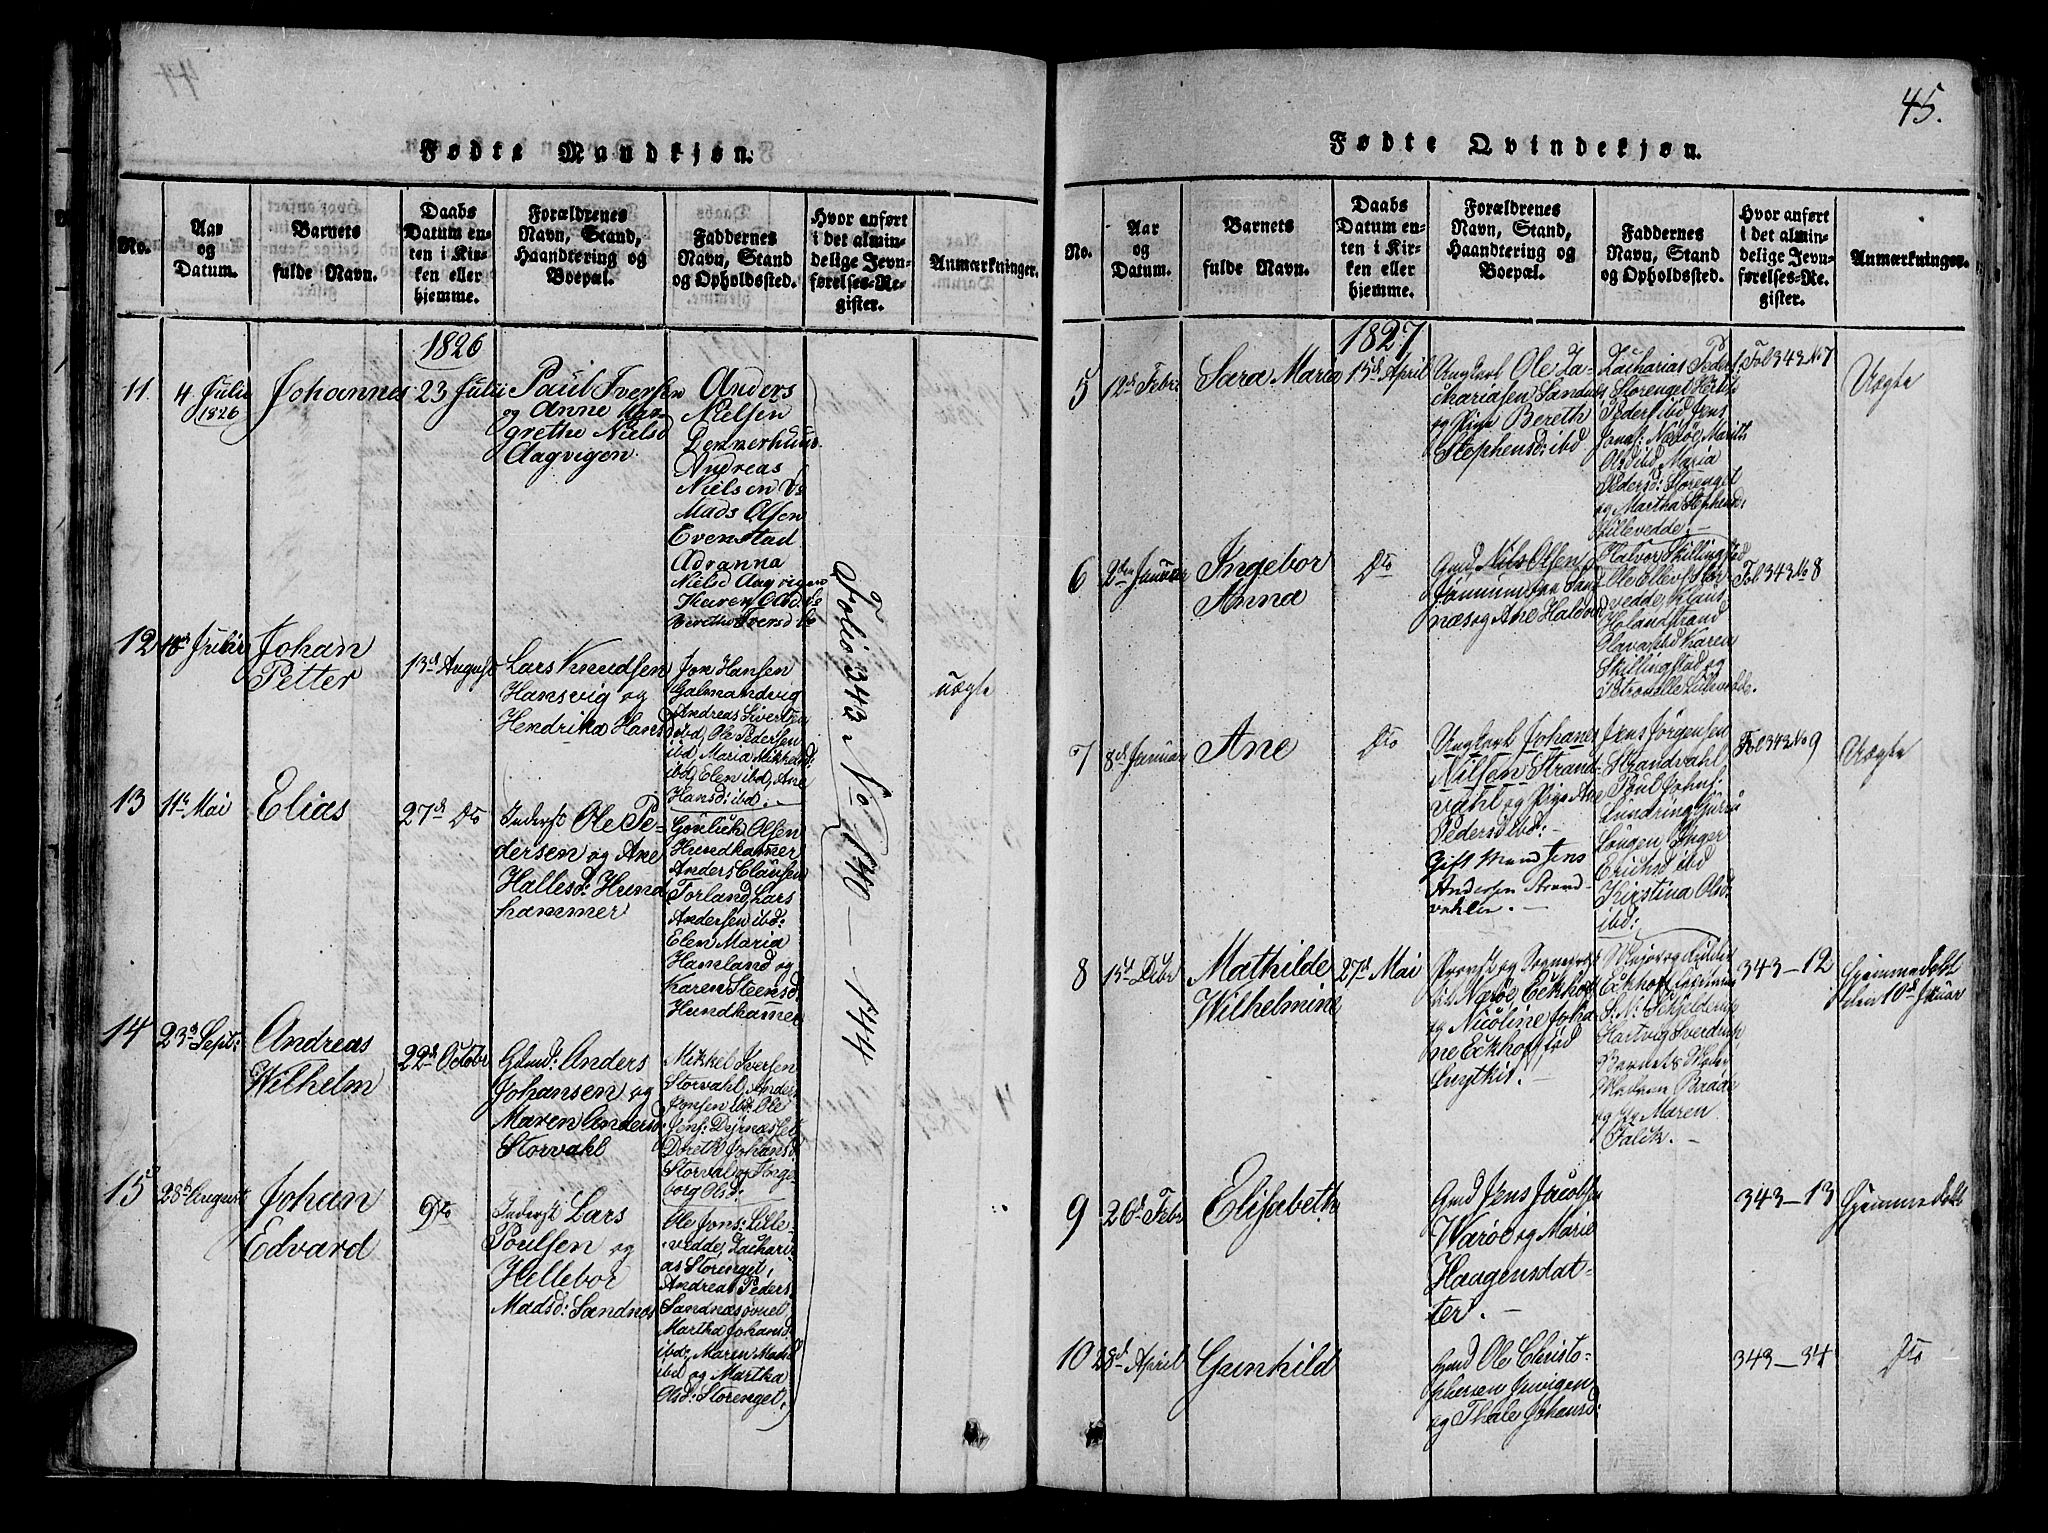 45.
Fødte Mandkjøn.
No.
Aar
og
Datum.
Barnets
fulde Navn.
Daabs
Datum en-
ten i Kir-
ken eller
hjemme.
Forældrenes
Navn, Stand,
Haandtering og
Boepæl.
Faddernes
Navn, Stand
og Opholdssted.
Hvor anført
i det almin-
delige Jevn-
førelses-Re-
gister.
Anmærkninger.
1826
11.
4 Julii
1826
Johannes
23 Julii
Paul Iversen
og Anne Mar-
grethe Nielsd
Aagvigen
Anders
Nielsen
Dennerhuus
Andreas
Nielsen Ds
Mads Olsen
Evenstad
Adranna
Nielsd Aagvigen
Karen Olsd. Ds
Berethe Iversd Do
Folio 343 No 140 - 144
12
Julii
Johan
Petter
13d August
Lars Knudsen
Hansvig og
Hendrika Hansd
Jon Hansen
Galmandvig
Andreas Sivertsen
ibd, Ole Pedersen
ibd, Maria Mikkelsd:
ibd, Elen ibd, Ane
Hansd: ibd.
uægte
13
11te Mai
Elias
27d Do
Inderst Ole Pe-
dersen og Ane
Hallesd: Hund
hammer
Gorlich Olsen
Hundhamer
Anders Clausen
Torland, Lars
Andersen ibd:
Elen Maria
Hamland og
Karen Steensd:
Hundhamer
14
23d Sept:
Andreas
Wilhelm
22d Octobr
Gdmd: Anders
Johansen og
Maren Andersd:
Storvahl
Mikkel Iversen
Storvahl, Anders
Jonsen ibd: Ole
Jens: Dyrnæsset
Dreth Johansd
Storval og Inge-
borg Olsd:
15
28d August
Johan
Edvard
9 Do
Inderst Lars
Poulsen og
Hellebor
Madsd: Sandnæs
Ole Jons: Lille-
vedde, Zachari-
as Storenget,
Andreas Peders
Sandnæs
Martha Johansd
ibd, Maren Madsd
ibd og Martha
Olsd: Storenget,
Fødte Qvindekjøn.
No.
Aar
og
Datum.
Barnets
fulde Navn.
Daabs
Datum en-
ten i Kir-
ken eller
hjemme.
Forældrenes
Navn, Stand,
Haandtering og
Boepæl.
Faddernes
Navn, Stand
og Opholdssted.
Hvor anført
i det almin-
delige Jevn-
førelses-Re-
gister.
Anmærkninger.
1827
5
12d Febr
Sara Maria
15d April
Ungkarl Ole Za-
chariasen Sandnæs
og Pige Bereth
Stephensd: ibd
Zacharias Peders
Storenget
Peders ibd Jens
Jonas: Nærøe, Marith
Olsd ibd, Maria
Pedersd: Storenget
og Martha Stephensd:
Lillevedde.
Fol 343 No 7
Uægte
6
2den Januar
Ingebor
Anna
Do
Gmd Nils Olsen
Sand-
næs og Ane Haldors
Halvor Skillingstad
Ole Ellevs: Stor-
vedde, Klaus
Holandstrand
Olava ibd Karen
Skillingstad og
Petronelle Lillevedde.
Fol 343 No 8
7
8d Januar
Ane
Do
Ungkarl Johanes
Nilsen Strand-
vahl og Pige Ane
Pedersd ibd:
Gift Mand Jens
Andersen Strand-
vahlen.
Jens Jørgensen
Strandvahl,
Poul Johns:
Lundring, Guru
Longen, Inger
Erichsd ibd
Kirstina Olsd:
ibd:
Fol 343 No 9
Uægte
8
15d Debr
Mathilde
Wilhelmine
27d Mai
Provst og Sognepræst
til Nærøe, Eckhoff
og Nicoline Joha-
ne Eckhoff, fød
Lugtkir.
Major og Ridder
Eckhoff,
S: N: Schjelderup
Hartvig Sverdrup
Barnets Moder
Madam Brøde
og Jfr Maren
Falck.
343-12
Hjemmedøbt
den 10d Januar
9
26d Febr
Elisabeth
Gmd Jens Jacobsen
Warøe og Marie
Haagensdat-
ter.
343-13
Hjemmedøbt
10
28d April
Gunhild
Gmd Ole Christo-
phersen Juvigen
og Thale Johansd:
343-34
Do